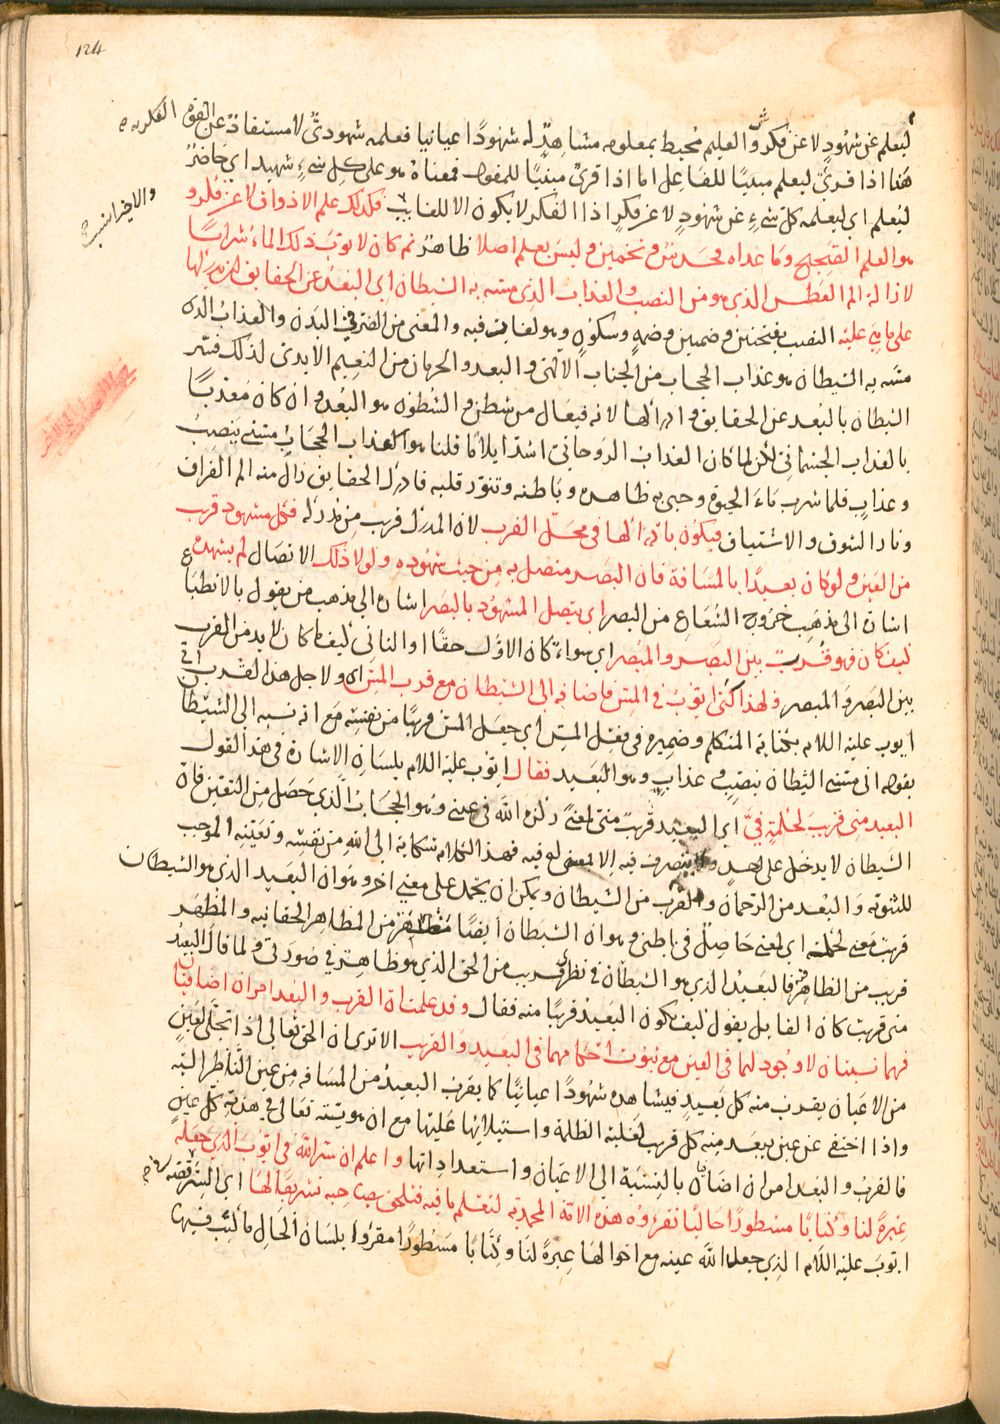 124
ليعلم عن شهود لا عن فكر والعليم محيط بمعلومه مشاهد له شهودا عيانيا فعلمه شهودي لا مستفاد عن القوة الفكرية
هذا اذا قرئ ليعلم مبنيا للفاعل اما اذا قرئ مبنيا للمفعول فمعناه هو على كل شيء شهيد اي حاضر
ليعلم اي ليعلمه كل شيء عن شهود لا عن فكر اذ الفكر لا يكون الا للغايب فكذلك علم الاذواق لا عن فكر و
هو العلم الصحيح وما عداه فحدس وتخمين وليس بعلم اصلا ظاهر ثم كان لايوب ذلك الماء شرابا
لازالة الم العطش الذي هو من النصب والعذاب الذي مسه به الشيطان اي البعد عن الحقايق ان يدركها
على ما هي عليه النصب بفتحتين وضمتين وضمة وسكون وهو لغات فيه والمعنى من الضر في البدن والعذاب الذي
مسه به الشيطان هو عذاب الحجاب من الجناب الالهي والبعد والحرمان من النعيم الابدي لذلك فسر
الشيطان بالبعد عن الحقايق وادراكها لانه فيعال من شطن والشطون هو البعد وان كان معذبا
بالعذاب الجسماني لكن لما كان العذاب الروحاني اشد ايلاما قلنا هو العذاب الحجاب مسني بنصب
وعذاب فلما شرب ماء الحيوة وحيي به ظاهره وباطنه وتنور قلبه فادرك الحقايق زال منه الم الفراق
ونار الشوق والاشتياق فيكون بادراكها في محل القرب لان المدرك قريب من مدركه فكل مشهود قريب
من العين ولو كان بعيدا بالمسافة فان البصر متصل به من حيث شهوده ولولا ذلك الاتصال لم يشهده
اشارة الى مذهب خروج الشعاع من البصر او يتصل المشهود بالبصر اشارة الى مذهب من يقول بالانطباع
كيف كان فهو قرب بين البصر والمبصر اي سواء كان الاول حقا او الثاني كيفما كان لابد من القرب
بين البصر والمبصر ولهذا كنى ايوب في المس فاضافه الى الشيطان مع قرب المس اي ولاجل هذا القرب اتى
ايوب عليه السلام بكناية المتكلم وضميره في فعل المس اي جعل المس قريبا من نفسه مع انه نسبه الى الشيطان
بقوله انى مسني الشيطان بنصب وعذاب وهو البعيد فقال ايوب عليه السلام بلسان الاشارة في هذا القول
البعيد مني قريب لحكمة في اي البعيد قريب مني لمعنى ركزه الله في عينه وهو الحجاب الذي حصل من التعين فان
الشيطان لا يدخل على احد ولا يتصرف فيه الا لمعنى له فيه فهذا الكلام شكاية الى الله من نفسه وتعينه الموجب
للثنوية والبعد من الرحمان والقرب من الشيطان ويمكن ان يحمل على معنى اخر وهو ان البعيد الذي هو الشيطان
قريب مني لحكمة اي لمعنى حاصل في باطني وهو ان الشيطان ايضا مظهر من المظاهر الحقانية والمظهر
قريب من الظاهر فالبعيد الذي هو الشيطان في نظر قريب من الحق الذي هو ظاهر في صورتي ولما قال البعيد
مني قريب كان القايل يقول كيف يكون البعيد قريبا منه فقال وقد علمت ان القرب والبعد امران اضافيان
فهما نسبتان لا وجود لهما في العين مع ثبوت احكامهما في البعيد والقريب الا ترى ان الحق تعالى اذا تجلى لعين
من الاعيان يقرب منه كل بعيد فيشاهده شهودا عيانيا كما يقرب البعيد من المسافر من عين الناظر اليه
واذا اختفى عن عين يبعد منه كل قريب لغلبة الظلمة واستيلائها عليها مع ان هويته تعالى في هذه كل عين
فالقرب والبعد امران اضافيان بالنسبة الى الاعيان واستعداداتها واعلم ان سر الله في ايوب الذي جعله
عبرة لنا وكتابا مسطورا حاليا تقرؤه هذه الامة المحمدية لتعلم ما فيه فتلحق بصاحبه تشريفا لها اي السر في قصة
ايوب عليه السلام الذي جعل الله عينه مع احوالها عبرة لنا وكتابا مسطورا مقروا بلسان الحال ما كتب فيها